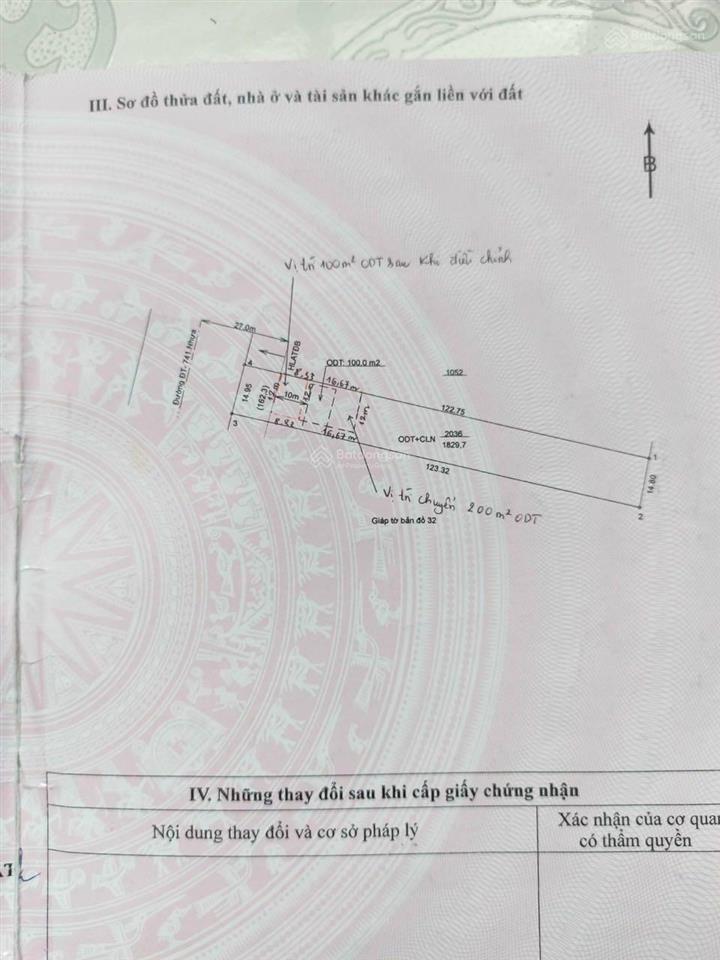 Batdongsan
III. Sơ đồ thửa đất, nhà ở và tài sản khác gắn liền với đất
B
Vị trí 100m² ODT sau khi điều chỉnh
27.0m
Đường ĐT: 741 Nhựa
HLATĐB
4
8,33
ODT: 100.0 m2
16,67 m
1052
14.95
(162.3)
12m
10m
12.0
12m
122.75
3
16,67 m
ODT+CLN
2036
1829.7
1
123.32
14.80
2
Batdongsan
Vị trí chuyển 200m² ODT
Giáp tờ bản đồ 32
IV. Những thay đổi sau khi cấp giấy chứng nhận
Nội dung thay đổi và cơ sở pháp lý
Xác nhận của cơ quan
có thẩm quyền